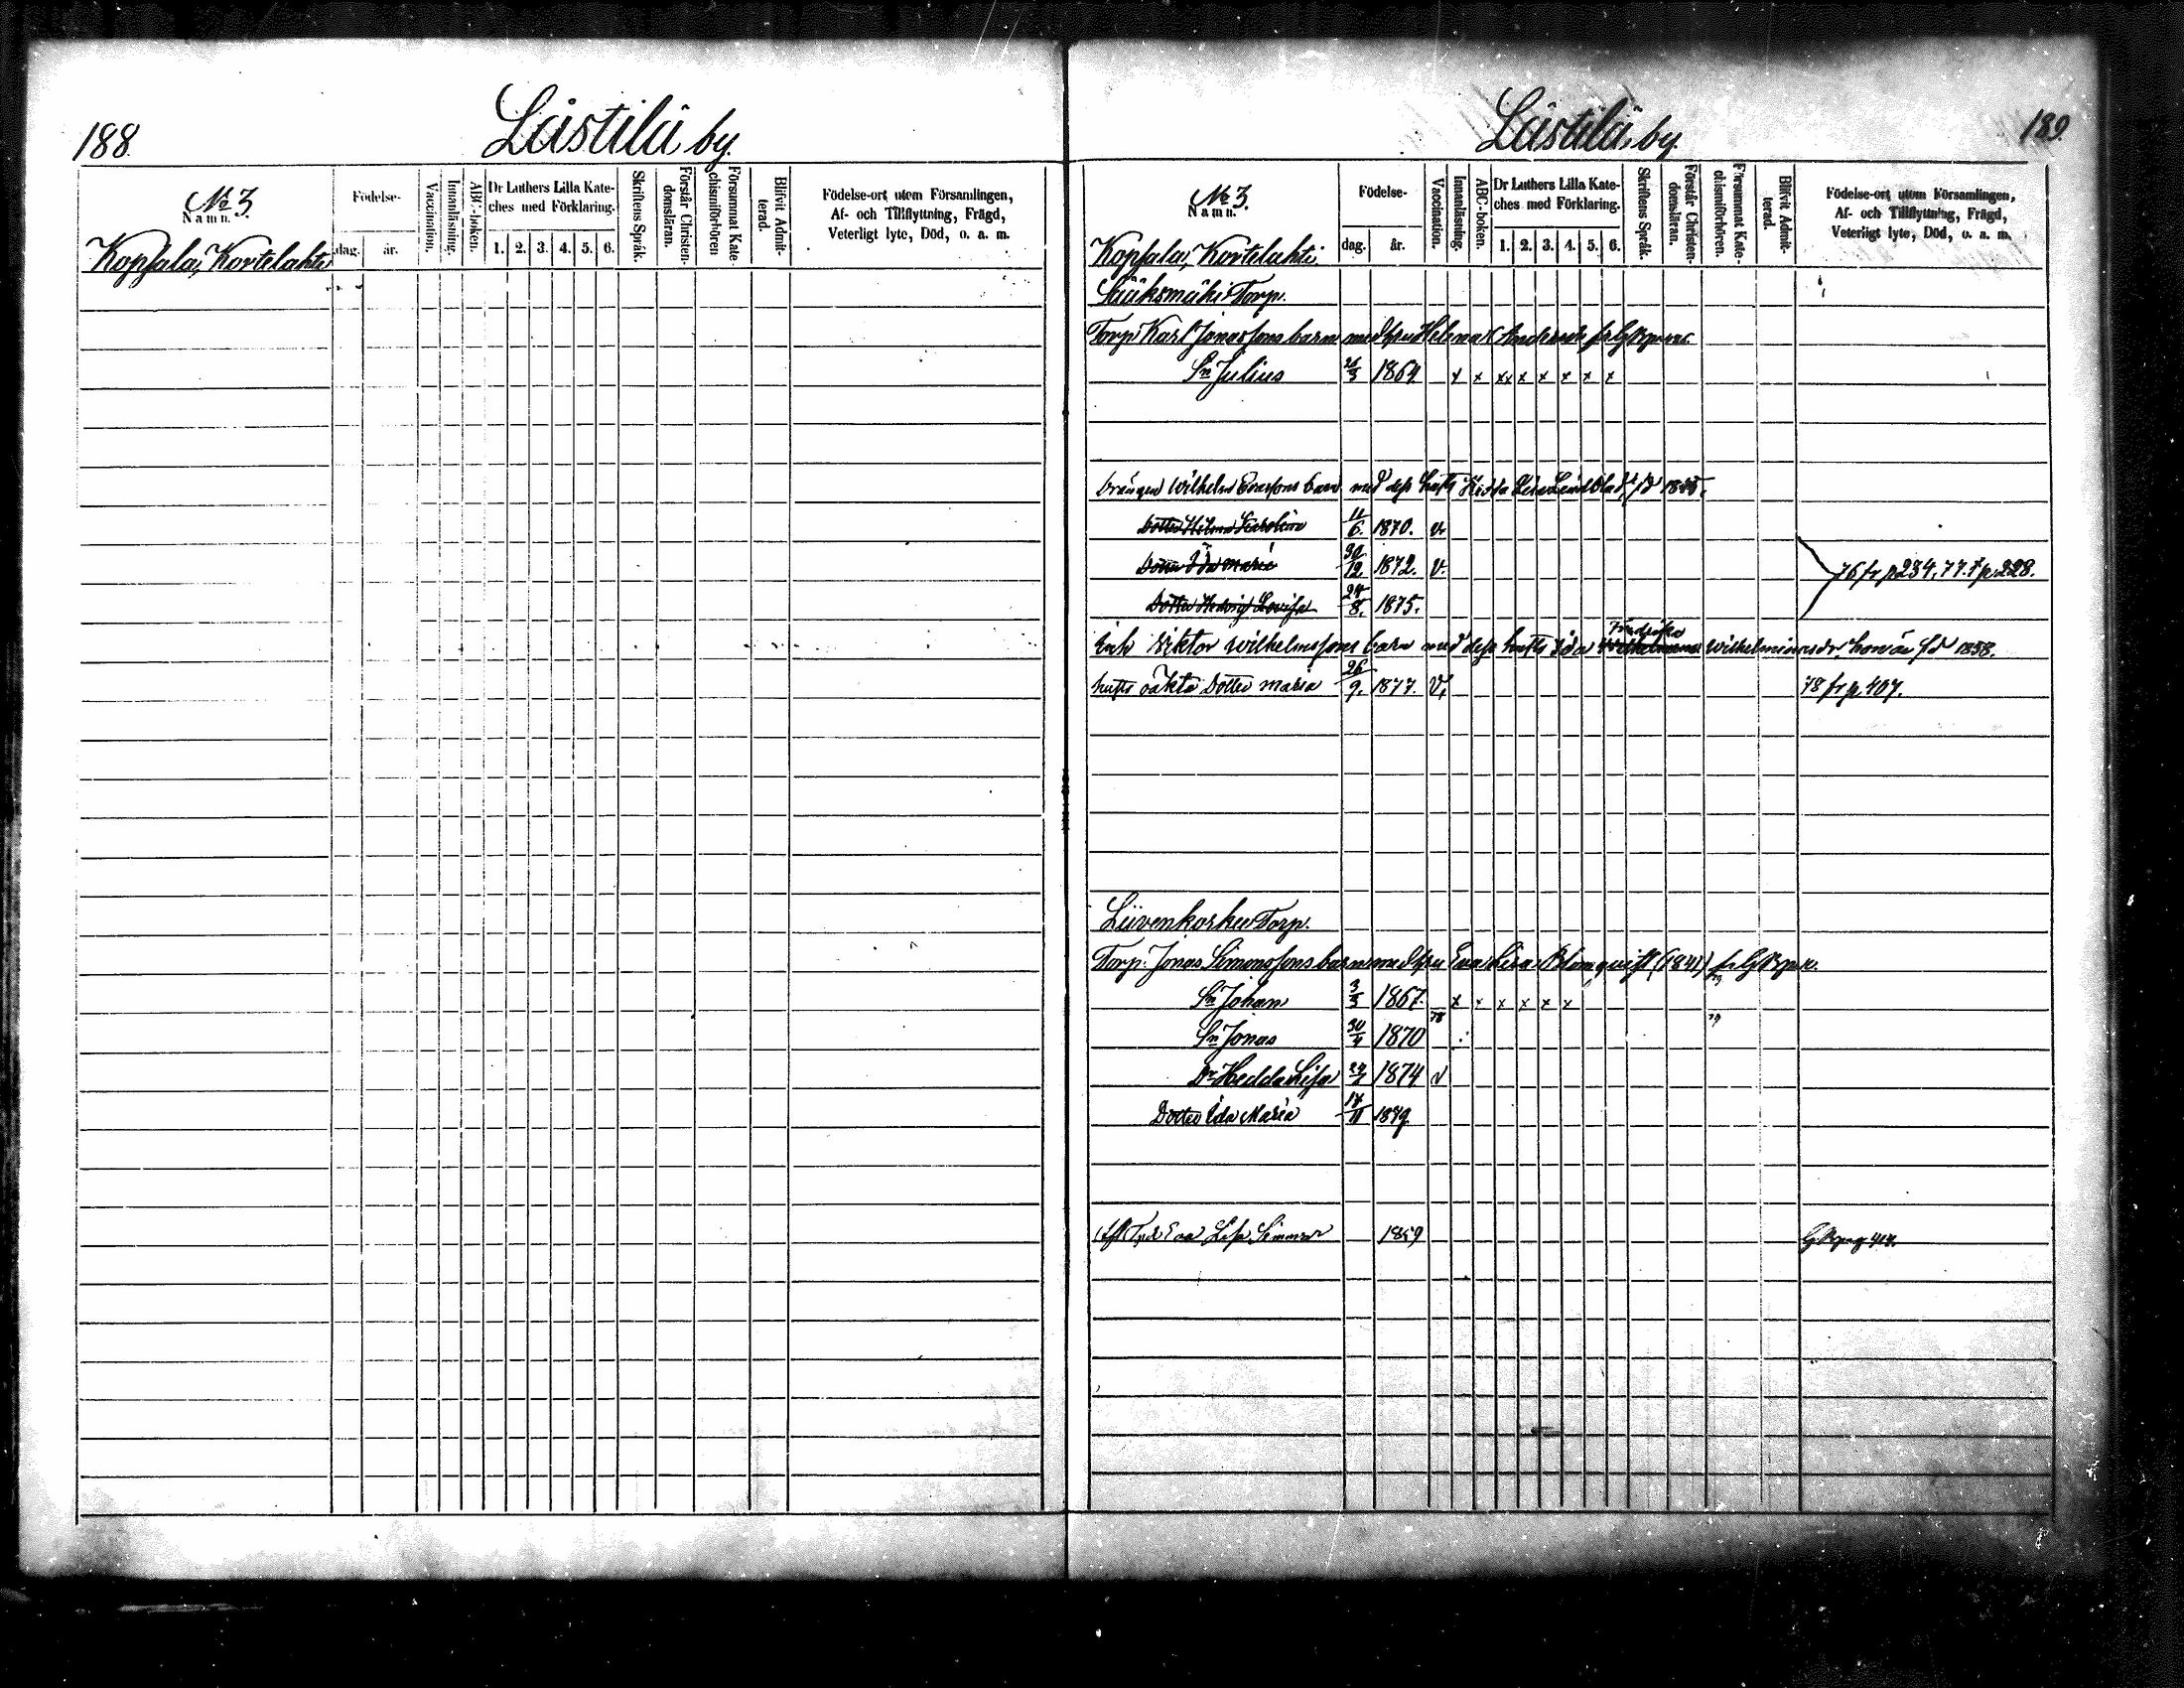 188.
Låstilä by.
№ 3.
Namn.
Kopsala, Kortelahti
Födelse-
dag.
år.
Vaccination.
Innanläsning.
ABC-boken.
Dr Luthers Lilla Kate-
ches med Förklaring.
1. 2. 3. 4. 5. 6.
Skriftens Språk.
Förstår Christen-
domsläran.
Försummat Kate-
chismiförhören
Blifvit Admit-
terad.
Födelse-ort utom Församlingen,
Af- och Tillflyttning, Frägd,
Veterligt lyte, Död, o. a. m.
Lästilä by.
189.
№ 3.
Namn.
Kopsala, Kortelahti.
Födelse-
dag.
år.
Vaccination.
Innanläsning.
ABC-boken.
Dr Luthers Lilla Kate-
ches med Förklaring.
1. 2. 3. 4. 5. 6.
Skriftens Språk.
Förstår Christen-
domsläran.
Försummat Kate-
chismiförhören.
Blifvit Admit-
terad.
Födelse-ort utom Församlingen,
Af- och Tillflyttning, Frägd,
Veterligt lyte, Död, o. a. m.
Sääksmäki Torp.
Torp. Karl Jonassons barn med hru Helena
Sn Julius 26/3 1864 x x xx x x x x x
Drängen Wilhelm barn med dess hustr Hedda Lisa Lindblad fd 1845.
Dotter Hilma Karolina 11/6. 1870. v.
Dotter Ida Maria 30/12. 1872. v. 76 fr p 234, 77. t p 228.
Dotter Hedvig Lovisa 24/8. 1875.
Inh Viktor Wilhelmssons barn med dess hustr Ida Fredrika Wilhelminasdr. hon är fd 1858.
hustr oäkta Dotter Maria 26/9. 1877. V. 78 fr p 407.
Liivenkosken Torp.
Torp. Jonas Simonssons barn med hru Eva Lisa Blomqvist (1841)
Sn Johan 3/3 1867. x x x x x x
Sn Jonas 30/4 1870 78 79
Dr Hedda Lisa 1874 v
Dotter Ida Maria 17/11 1879
Eva Lisa 1859